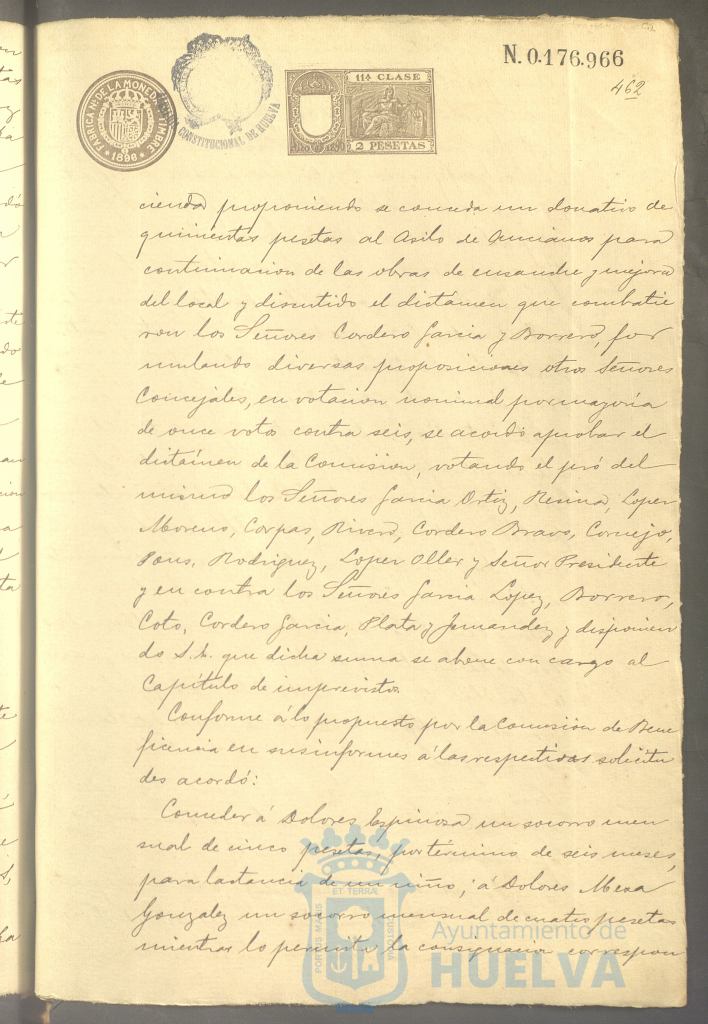 N. 0.176.966
462
FABRICA NL. DE LA MONEDA Y TIMBRE
* 1896 *
CONSTITUCIONAL DE HUELVA
11ª CLASE
2 PESETAS
cienda proponiendo se conceda un donativo de
quinientas pesetas al Asilo de Ancianos para
continuacion de las obras de ensanche y mejora
del local y discutido el dictámen que combatie
ron los Señores Cordero Garcia y Borrero, for
mulando diversas proposiciones otros Señores
Concejales, en votacion nominal por mayoría
de once votos contra seis, se acordó aprobar el
dictámen de la Comision, votando el pró del
mismo los Señores Garcia Ortiz, Resina, Lopez
Moreno, Corpas, Rivero, Cordero Bravo, Cornejo,
Pons, Rodriguez, Lopez Oller y Señor Presidente
y en contra los Señores Garcia Lopez, Borrero,
Coto, Cordero Garcia, Plata y Fernandez y disponien
do S.E. que dicha suma se abone con cargo al
Capítulo de imprevistos.
Conforme á lo propuesto por la Comisión de Bene
ficencia en sus informes á las respectivas solicitu
des acordó:
Conceder á Dolores Espinosa un socorro men
sual de cinco pesetas, por término de seis meses,
para lactancia de un niño; á Dolores Mesa
Gonzalez un socorro mensual de cuatro pesetas
mientras lo permita la consignacion correspon
PORTUS MARIS ET TERRAE CUSTODIA
Ayuntamiento de
HUELVA